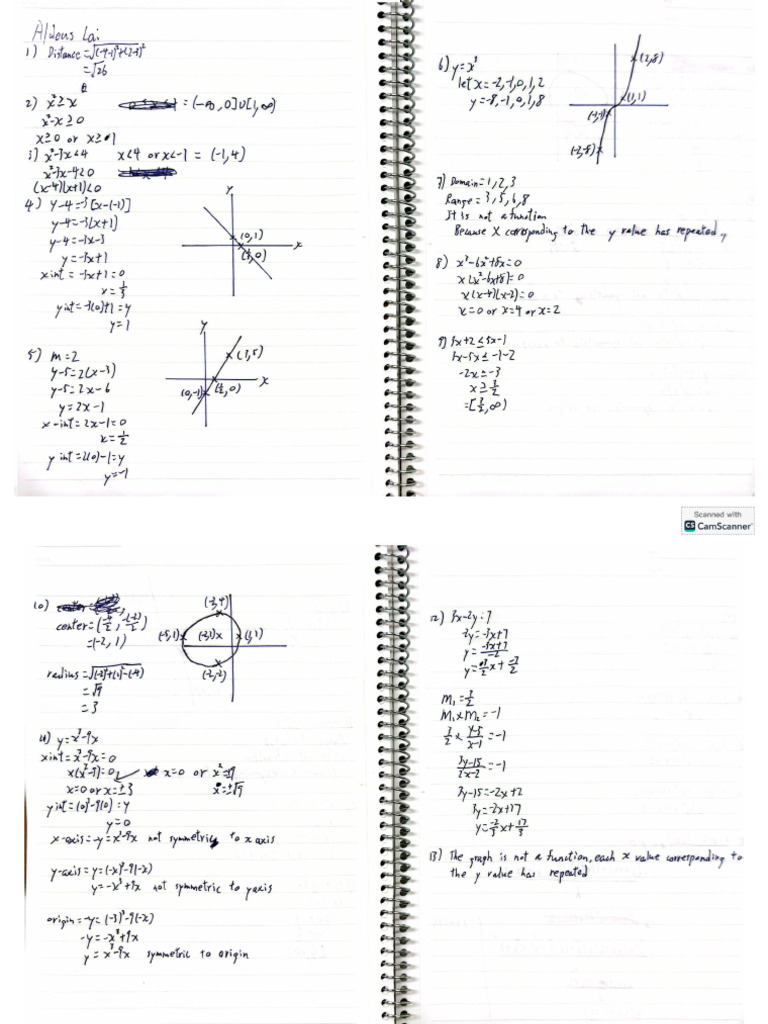 Aldous Lai
1) Distance = √(-4-1)²+(2-3)²
= √26
2) x² ≥ x = (-∞, 0] ∪ [1, ∞)
x²-x ≥ 0
x ≥ 0 or x ≥ 1
3) x²-3x < 4 x < 4 or x < -1 = (-1, 4)
x²-3x-4 < 0
(x-4)(x+1) < 0
4) y-4 = -3[x-(-1)]
y-4 = -3(x+1)
y-4 = -3x-3
y = -3x+1
x int = -3x+1 = 0
x = 1/3
y int = -3(0)+1 = y
y = 1
y
(0,1)
(1/3, 0)
x
5) m = 2
y-5 = 2(x-3)
y-5 = 2x-6
y = 2x-1
x-int = 2x-1 = 0
x = 1/2
y int = 2(0)-1 = y
y = -1
y
(3,5)
(0,-1)
(1/2, 0)
x
6) y = x³
let x = -2, -1, 0, 1, 2
y = -8, -1, 0, 1, 8
(2,8)
(1,1)
(-1,-1)
(-2,-8)
7) Domain = 1, 2, 3
Range = 3, 5, 6, 8
It is not a function
Because X corresponding to the y value has repeated,
8) x³-6x²+8x = 0
x(x²-6x+8) = 0
x(x-4)(x-2) = 0
x = 0 or x = 4 or x = 2
9) 3x+2 ≤ 5x-1
3x-5x ≤ -1-2
-2x ≤ -3
x ≥ 3/2
= [3/2, ∞)
Scanned with
CS CamScanner
10)
center = (-4/2, -(-2)/2)
= (-2, 1)
radius = √(-2)²+(1)²-(-4)
= √9
= 3
(-2,4)
(-5,1)
(-2,1)x
(1,1)
(-2,-2)
11) y = x³-9x
x int = x³-9x = 0
x(x²-9) = 0 x = 0 or x² = 9
x = 0 or x = ±3 x = ±√9
y int = (0)³-9(0) = y
y = 0
x-axis = -y = x³-9x not symmetric to x axis
y-axis = y = (-x)³-9(-x)
y = -x³+9x not symmetric to y axis
origin = -y = (-3)³-9(-x)
-y = -x³+9x
y = x³-9x symmetric to origin
12) 3x-2y = 7
2y = -3x+7
y = -3x+7/-2
y = 3/2 x + -7/2
m₁ = 3/2
m₁ x m₂ = -1
3/2 x y-5/x-1 = -1
3y-15/2x-2 = -1
3y-15 = -2x+2
3y = -2x+17
y = -2/3 x + 17/3
13) The graph is not a function, each x value corresponding to
the y value has repeated